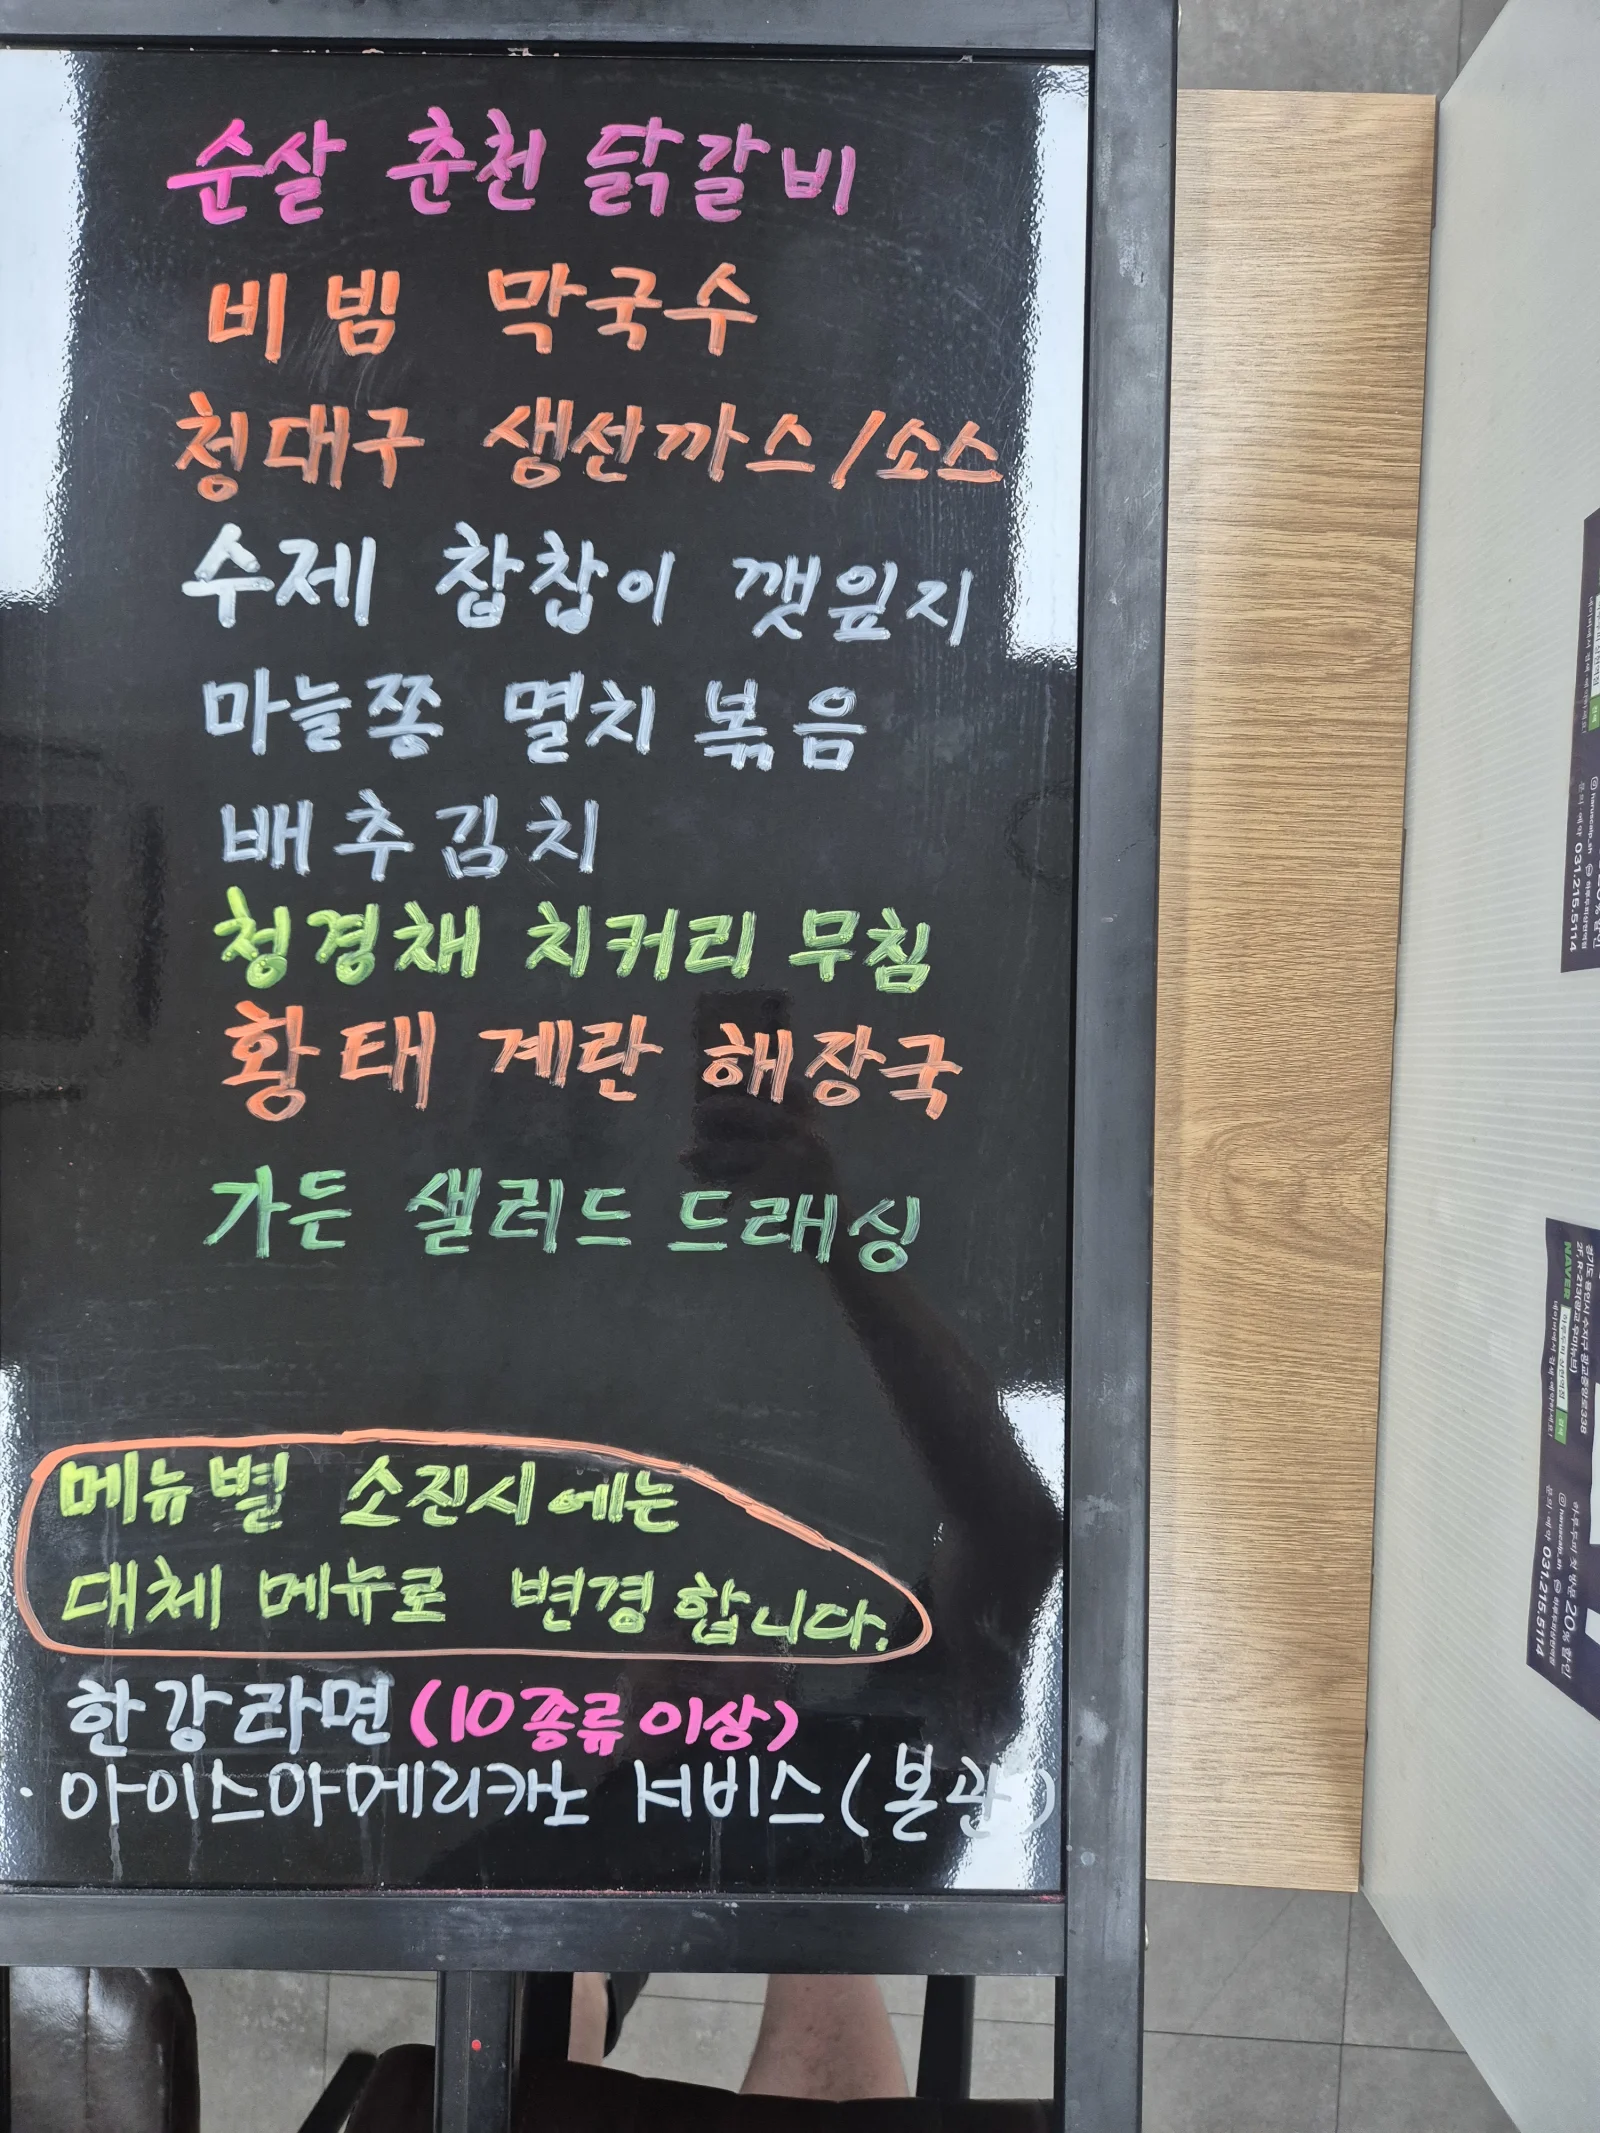 순살 춘천 닭갈비
비빔 막국수
청대구 생선까스/소스
수제 찹찹이 깻잎지
마늘쫑 멸치 볶음
배추김치
청경채 치커리 무침
황태 계란 해장국
가든 샐러드 드래싱
메뉴별 소진시에는
대체 메뉴로 변경합니다.
한강라면 (10종류이상)
아이스아메리카노 서비스 (본관)
@haruscalp_sh
문의·예약 031.215.5114
경기도 용인시 수지구 광교중앙로338
NAVER
네이버에서 검색·예약하세요!
20% 할인
@haruscalp_sh
문의·예약 031.215.5114